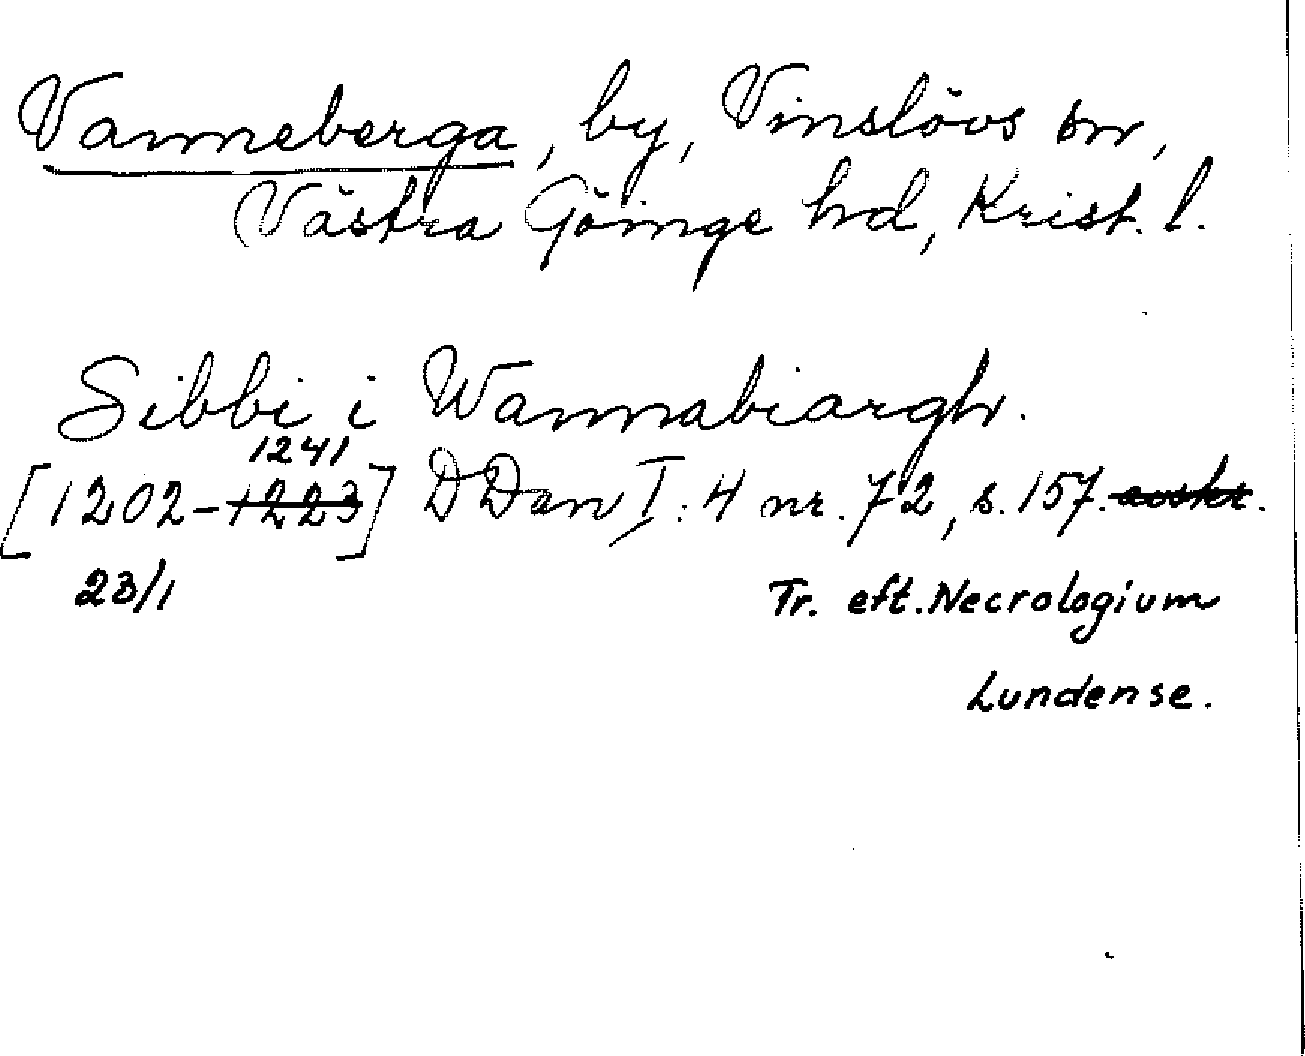 Vanneberga, by, Vinslövs sn,
Västra Göinge hd, Krist. l.
Sibbi i Wannabiargh.
1241
[1202-1223] DDan I:4 nr. 72, s. 157. avskr.
23/1
Tr. eft. Necrologium
Lundense.